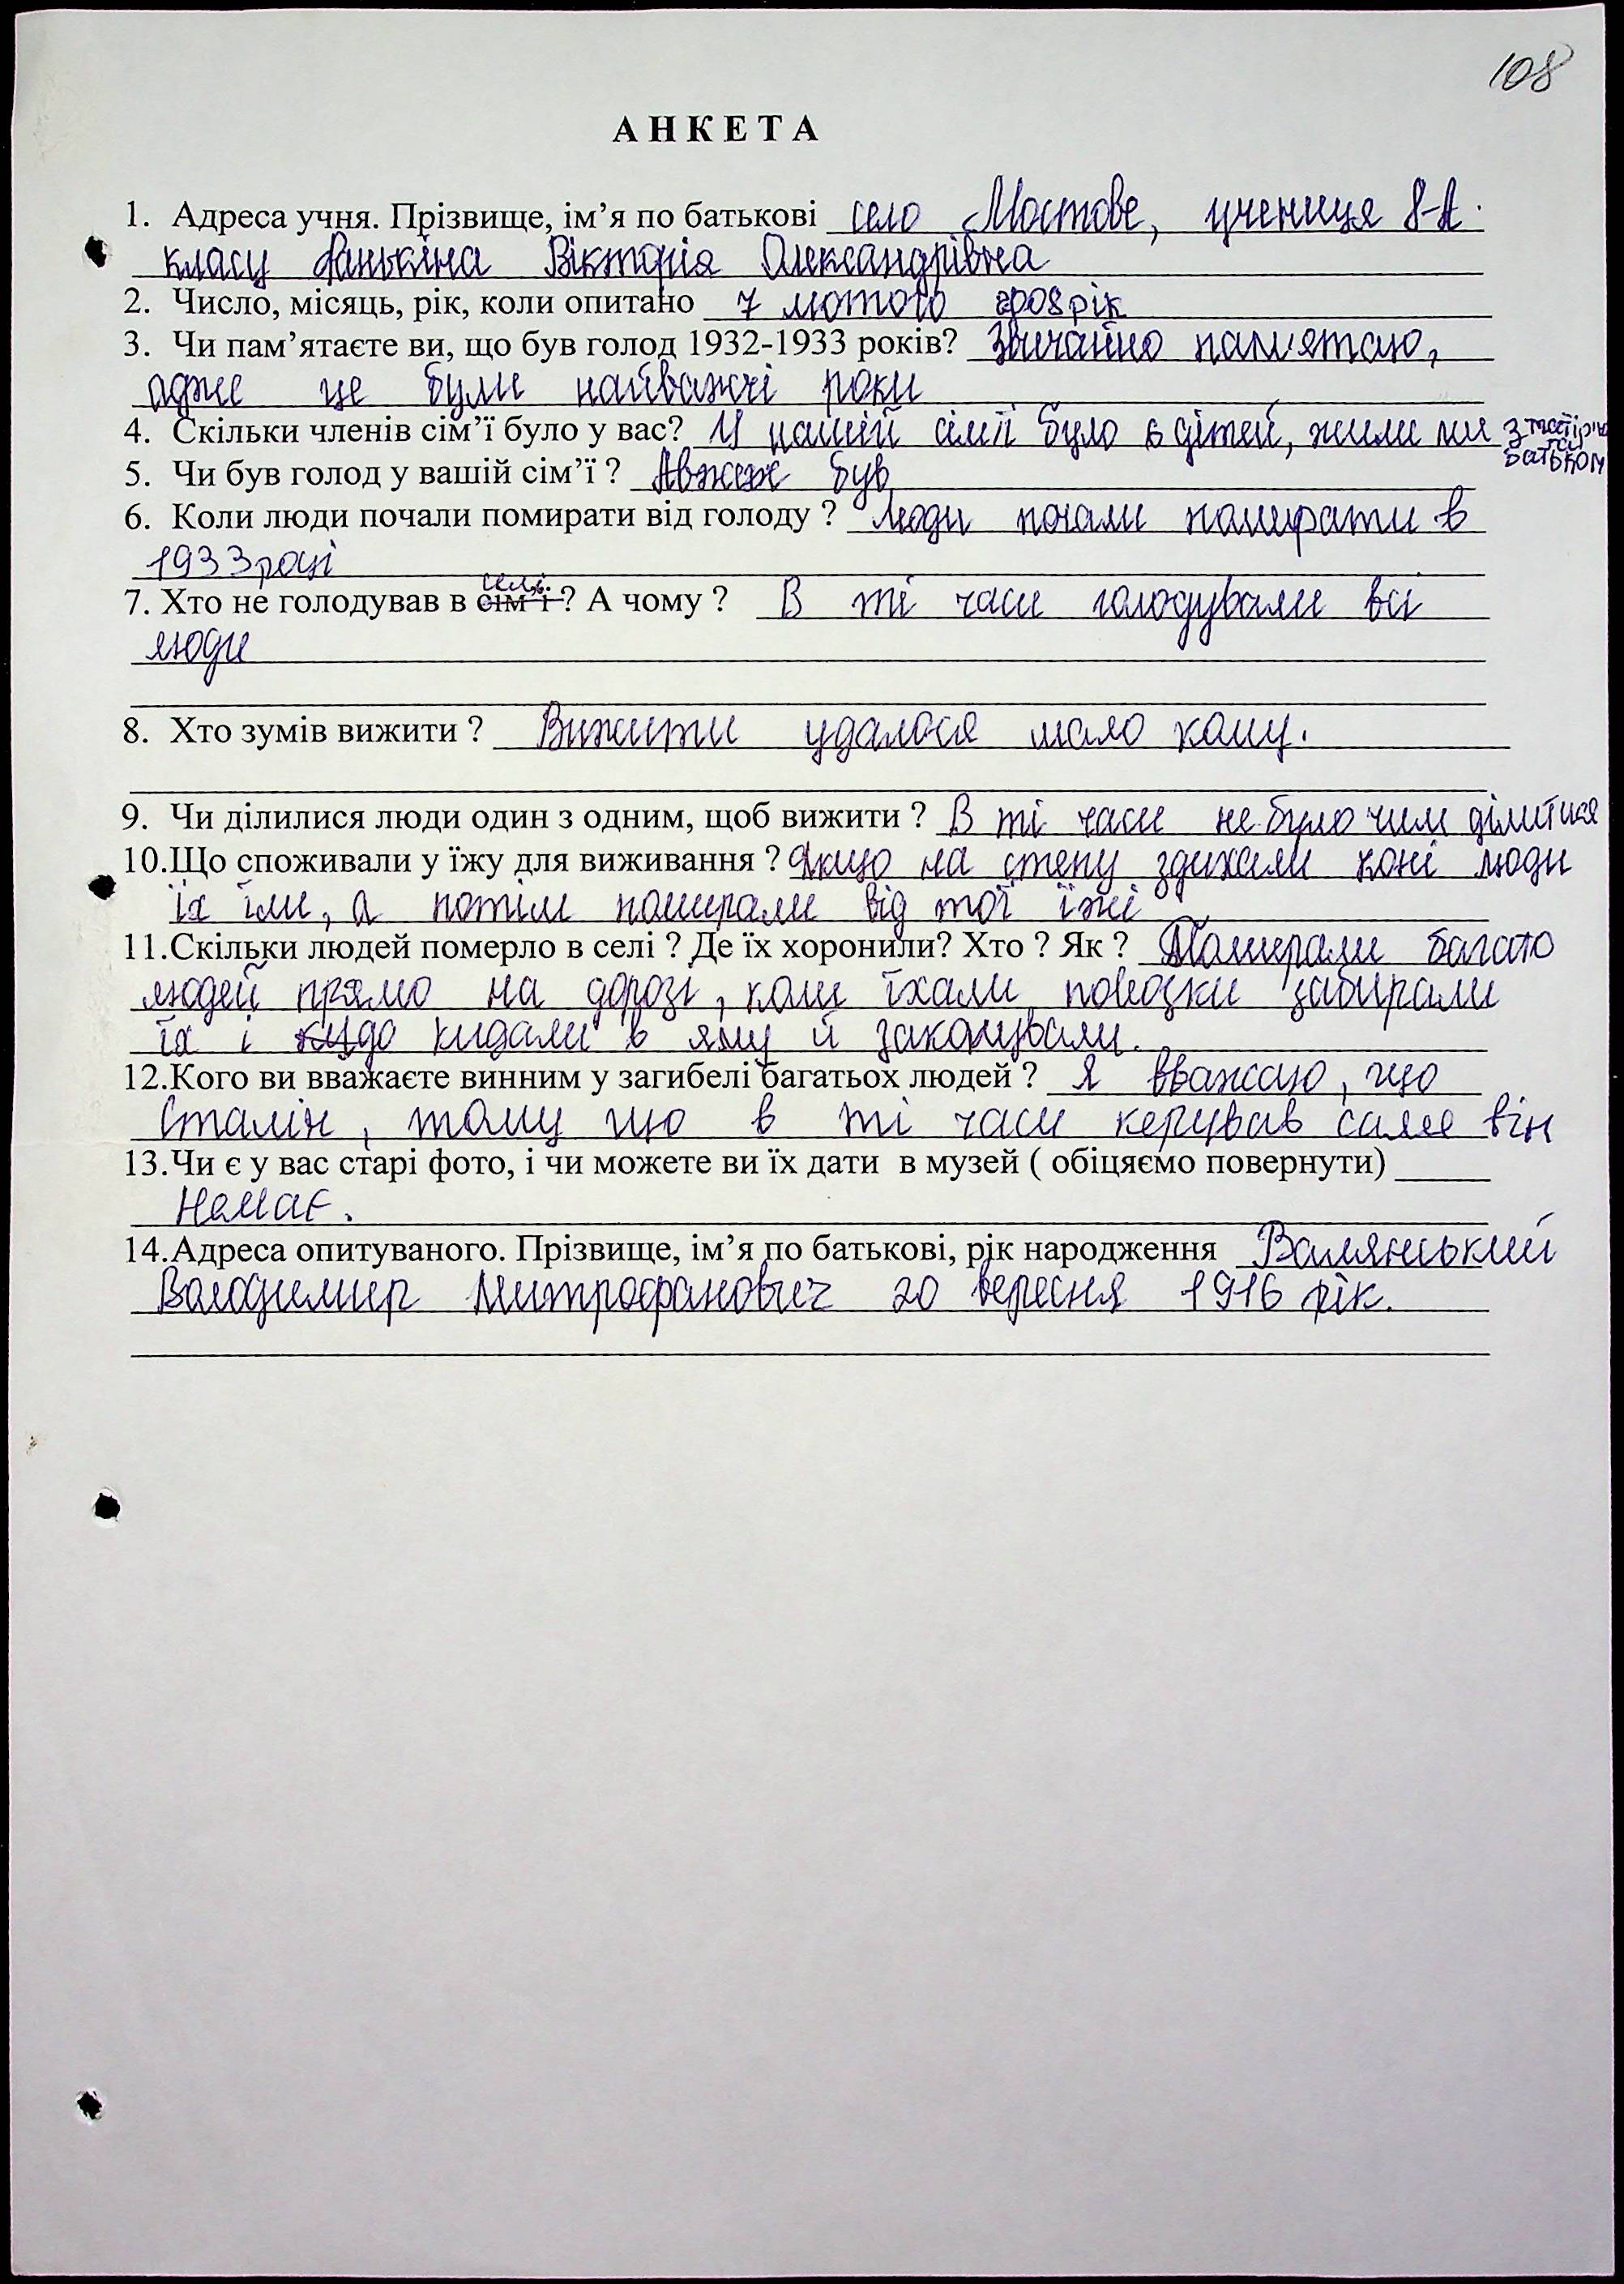 108
АНКЕТА
1. Адреса учня. Прізвище, ім’я по батькові село Мостове, учениця 8-А
класу Ванькіна Вікторія Олександрівна
2. Число, місяць, рік, коли опитано 7 лютого 2008 рік
3. Чи пам’ятаєте ви, що був голод 1932-1933 років? Звичайно пам'ятаю,
адже це були найважчі роки
4. Скільки членів сім’ї було у вас? У нашій сімї було 6 дітей, жили ми з матірю
та
батьком
5. Чи був голод у вашій сім’ї ? Авжеж був
6. Коли люди почали помирати від голоду ? Люди почали помирати в
1933 році
селі
7. Хто не голодував в сім’ї ? А чому ? В ті часи голодували всі
люди
8. Хто зумів вижити ? Вижити удалося мало кому.
9. Чи ділилися люди один з одним, щоб вижити ? В ті часи не було чим ділитися
10.Що споживали у їжу для виживання ? Якщо на степу здихали коні люди
їх їли, а потім помирали від тої їжі
11.Скільки людей померло в селі ? Де їх хоронили? Хто ? Як ? Помирали багато
людей прямо на дорозі, коли їхали повозки забирали
їх і кидали в яму й закопували.
12.Кого ви вважаєте винним у загибелі багатьох людей ? Я вважаю, що
Сталін, тому що в ті часи керував саме він
13.Чи є у вас старі фото, і чи можете ви їх дати в музей ( обіцяємо повернути)
Немає.
14.Адреса опитуваного. Прізвище, ім’я по батькові, рік народження Валянський
Володимир Митрофанович 20 вересня 1916 рік.